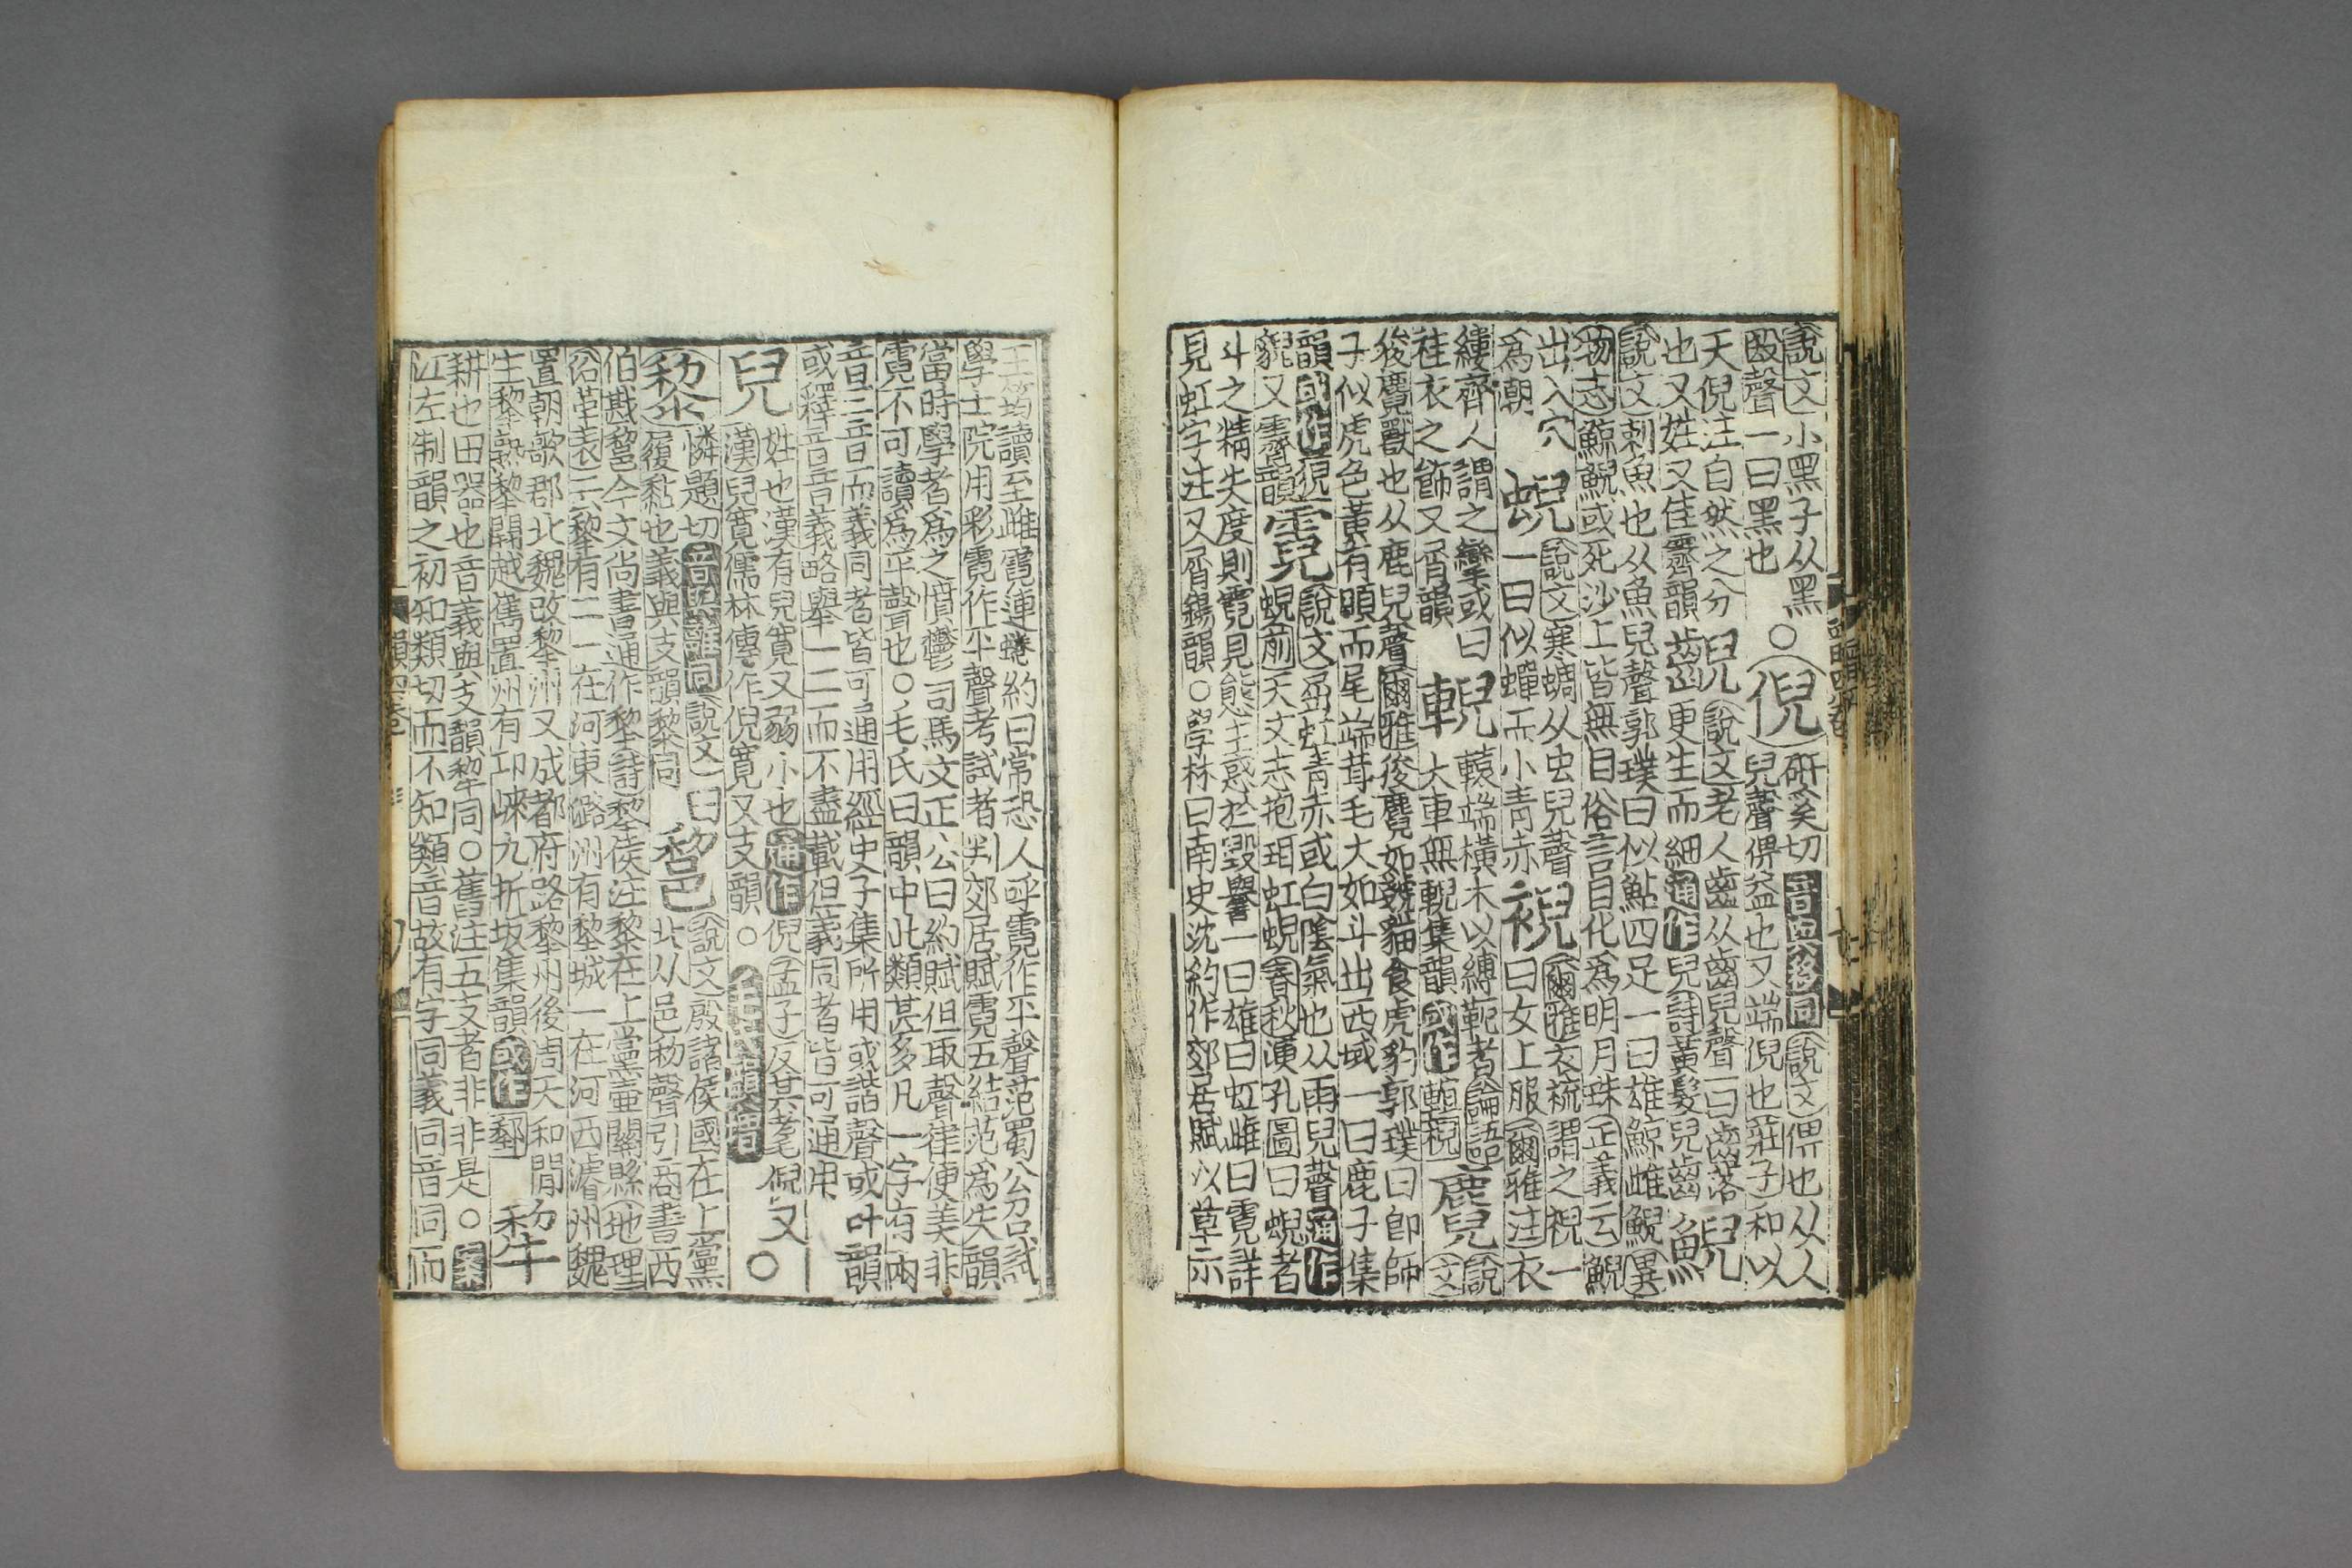 說文小黑子从黑○倪研奚切音與移同說文俾也从人
殹聲一曰黑也兒聲俾益也又端倪也莊子和以
天倪注自然之分齯說文老人齒从齒兒聲一曰齒落鯢
也又姓又佳霽韻更生而細通作兒詩黃髮兒齒
說文刺魚也从魚兒聲郭璞曰似鮎四足一曰雄鯨雌鯢異
物志鯨鯢或死沙上皆無目俗言目化爲明月珠正義云鯢
出入穴蜺說文寒蜩从虫兒聲䘽爾雅衣梳謂之䘽一
爲潮一曰似蟬而小青赤曰女上服爾雅注衣
縷齊人謂之攣或曰輗轅端橫木以縛軛者論語麑說
袿衣之飾又屑韻大車無輗集韻或作棿文
狻麑獸也从鹿兒聲爾雅狻麑如虥貓食虎豹郭璞曰卽師
子似虎色黃有而尾端茸毛大如斗出西域一曰鹿子集
韻或作猊霓說文屈虹青赤或白陰氣也从雨兒聲通作
貎又霽韻蜺前天文志抱珥虹蜺春秋演孔圖曰蜺者
斗之精失度則霓見態主惑於毀譽一曰雄曰虹雌曰霓詳
見虹字注又屑錫韻○學林曰南史沈約作郊居賦以草示
王筠讀至雌霓連蜷約曰常恐人呼霓作平聲范蜀公召試
學士院用彩霓作平聲考試者判郊居賦霓五結范爲失韻
當時學者爲之憤鬱司馬文正公曰約賦但取聲律便美非
霓不可讀爲平聲也○毛氏曰韻中此類甚多凡一字有兩
音三音而義同者皆可通用經史子集所用或諧聲或叶韻
或釋音言義略舉一二而不盡載但義同者皆可通用
兒姓也漢有兒寬又弱小也通作倪孟子反其耄倪又○
漢兒寬儒林傳作倪寬又支韻○毛氏韻增
黎憐題切音與離同說文曰𨛫說文殷諸侯國在上黨
履黏也義與支韻黎同北从邑𥝢聲引商書西
伯戡𨛫今文尚書通作黎詩黎侯注黎在上黨壺關縣地理
沿革表云黎有二一在河東潞州有黎城一在河西濬州魏
置朝歌郡北魏改黎州又成都府路黎州後周天和閒犂
生黎熟黎開越嶲置州有邛崍九折坂集韻或作
耕也田器也音義與支韻犂同○舊注五支者非非是○案
江左制韻之初知類切而不知類音故有字同義同音同而